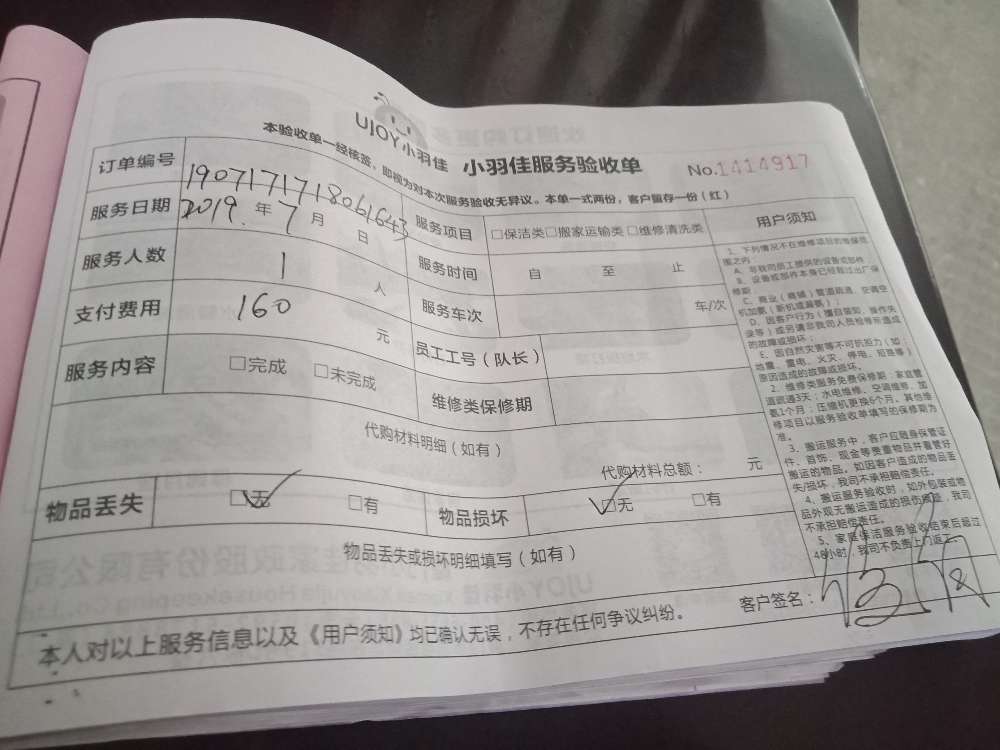 UJOY小羽佳 小羽佳服务验收单 No.1414917
本验收单一经核签，即视为对本次服务验收无异议。本单一式两份，客户留存一份（红）
订单编号 1907171718061643
服务项目 □保洁类□搬家运输类□维修清洗类
服务日期 2019.年7月 日
服务时间 自 至 止
服务人数 1 人
服务车次 车/次
支付费用 160 元
员工工号（队长）
服务内容 □完成 □未完成
维修类保修期
代购材料明细（如有）
代购材料总额： 元
物品丢失 □无 □有
物品损坏 □无 □有
物品丢失或损坏明细填写（如有）
本人对以上服务信息以及《用户须知》均已确认无误，不存在任何争议纠纷。 客户签名：
用户须知
1、下列情况不在维修项目的维保范
围之内：
A、非我司员工提供的设备或部件
B、设备或部件本身已经超过出厂保
修期；
C、商业（商铺）管道疏通、空调空
机加氨（新机或漏氨）；
D、因客户行为（擅自装卸、操作失
误等）或另请非我司人员检修所造成
的故障或损坏；
E、因自然灾害等不可抗拒力（如：
地震、雷电、火灾、停电、短路等）
原因造成的故障或损坏。
2、维修类服务免费保修期：家庭管
道疏通3天；水电维修、空调维修、加
氨1个月；压缩机更换6个月，其他维
修项目以服务验收单填写的保修期为
准。
3、搬运服务中，客户应随身保管证
件、首饰、现金等贵重物品并看管好
搬运的物品，如因客户造成的物品丢
失/损坏，我司不承担赔偿责任。
4、搬运服务验收时，如外包装或物
品外观无搬运造成的损伤痕迹，我司
不承担赔偿责任。
5、家庭保洁服务验收结束后超过
48小时，我司不负责上门返工。